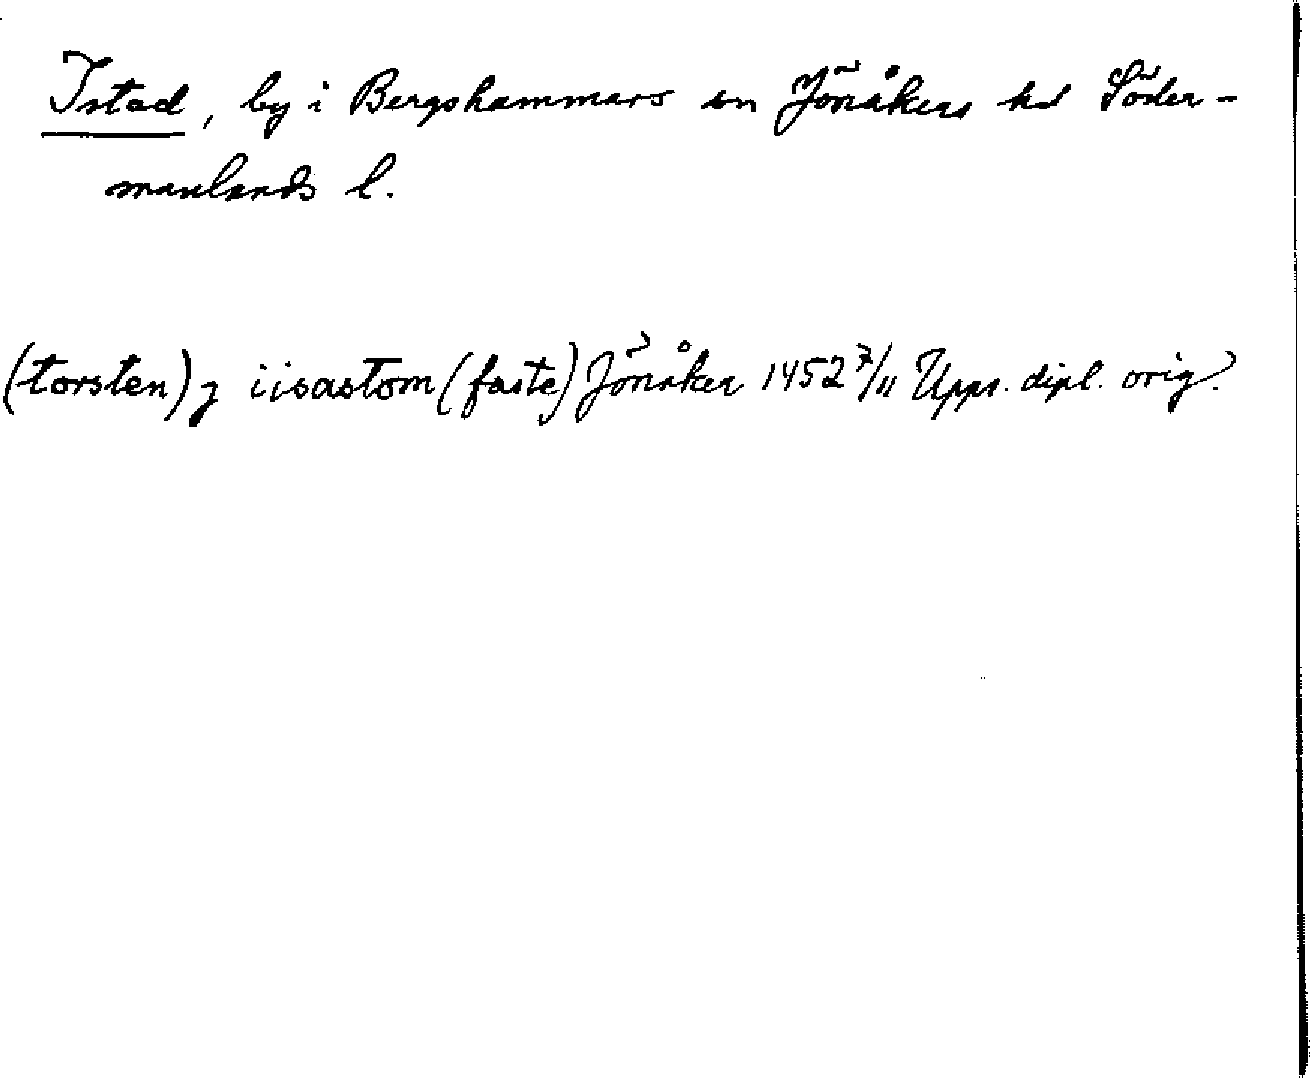 Istad, by i Bergshammars sn Jönåkers hd Söder-
manlands l.
(torsten) j iisastom (faste) Jönåker 1452 7/11 Upps. dipl. orig.